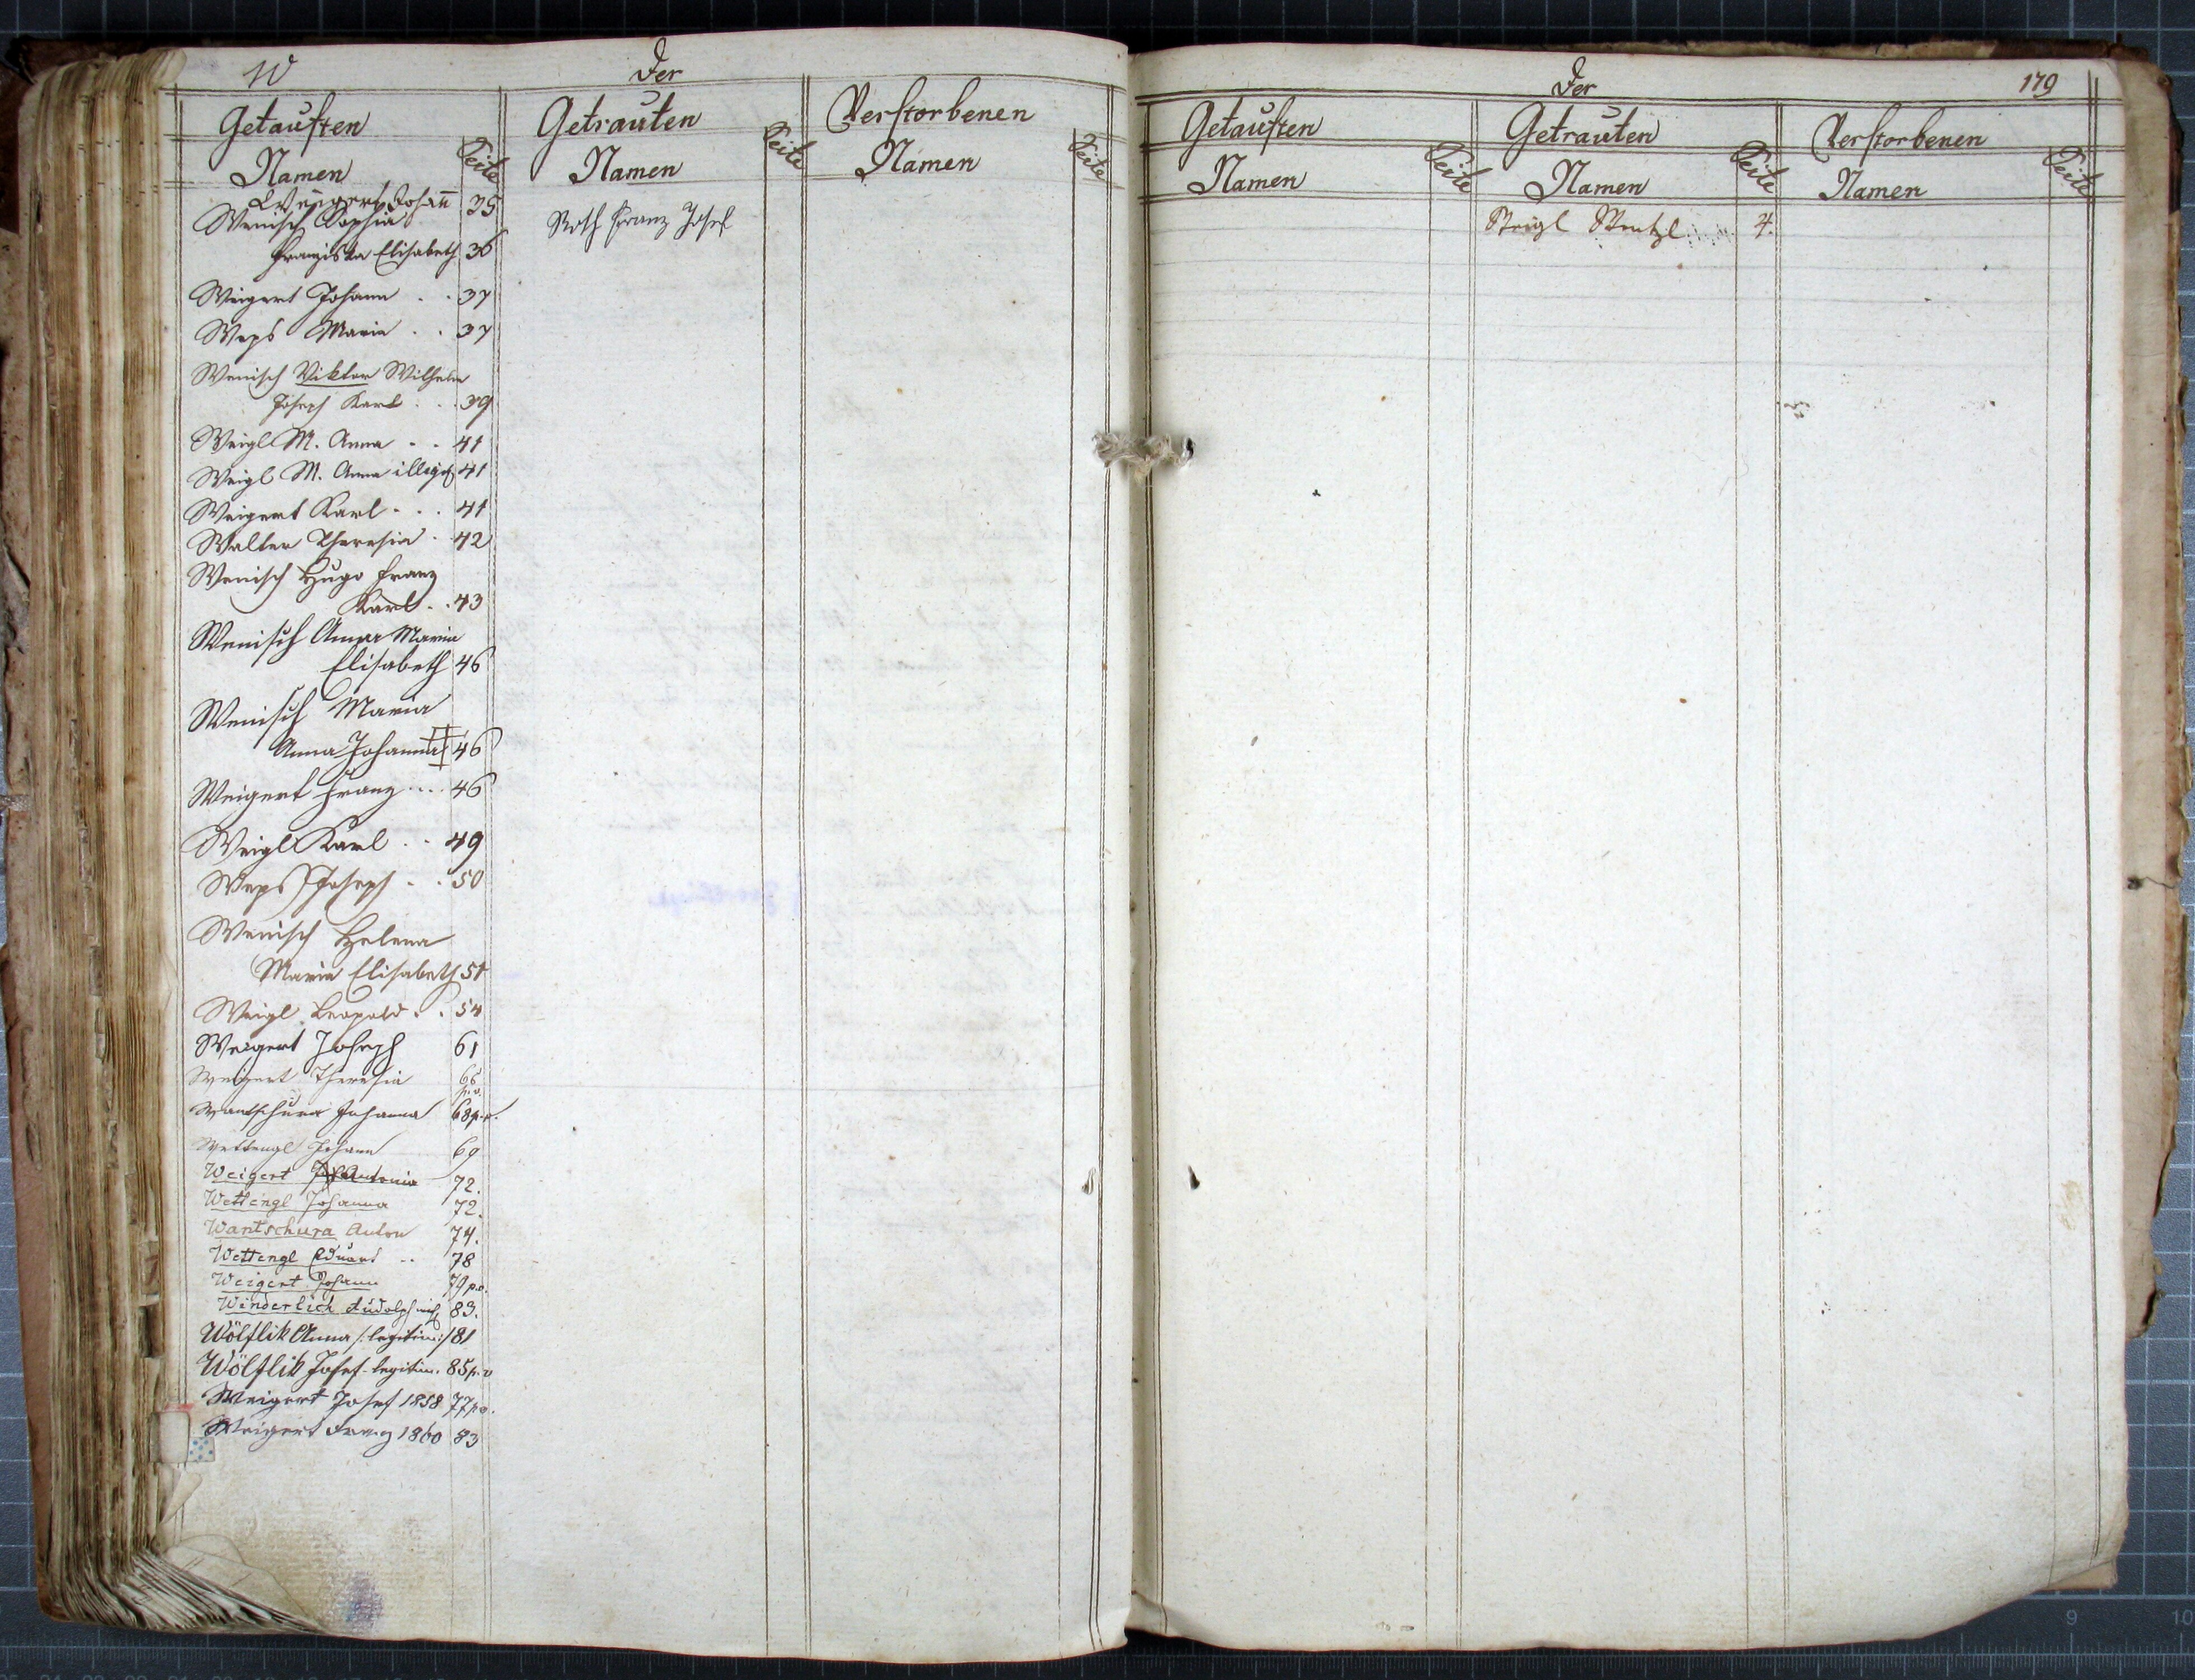 W
Der
Getauften
Getrauten
Verstorbenen
Namen Seite
Namen Seite
Namen Seite
Weigert Johan̄ 35
Wenisch Sophia
Franziska Elisabeth 36
Roth Franz Josef
Weigert Johann . . 37
Weps Maria . . 37
Wenisch Viktor Wilhelm
Joseph Karl . . . 39
Weigl M. Anna . . 41
Weigl M. Anna illegit 41
Weigert Karl . . . 41
Walter Theresia . 42
Wenisch Hugo Franz
Karl . . 43
Wenisch Anna Maria
Elisabeth 46
Wenisch Maria
Anna Johanna 46
Weigert Franz . . . . 46
Weigl Karl . . 49
Weps Joseph . . 50
Wenisch Helena
Maria Elisabeth 51
Weigl Leopold . . 54
Weigert Joseph 61
Weigert Theresia 66 p.v.
Wantschura Johanna 68 p.v.
Wettengl Johann 69
Weigert Antonia 72.
Wettengl Johanna 72.
Wantschura Anton 74.
Wettengl Eduard .. 78
Weigert Johann 79 p.v.
Winderlich Rudolph 83.
Wölflik Anna /: legitim :/ 81
Wölflik Josef - legitim. 85 p.v
Weigert Josef 1858 77 p.v.
Weigert Franz 1860 83
Der
179
Getauften
Getrauten
Verstorbenen
Namen Seite
Namen Seite
Namen Seite
Weigl Wentzl 4.